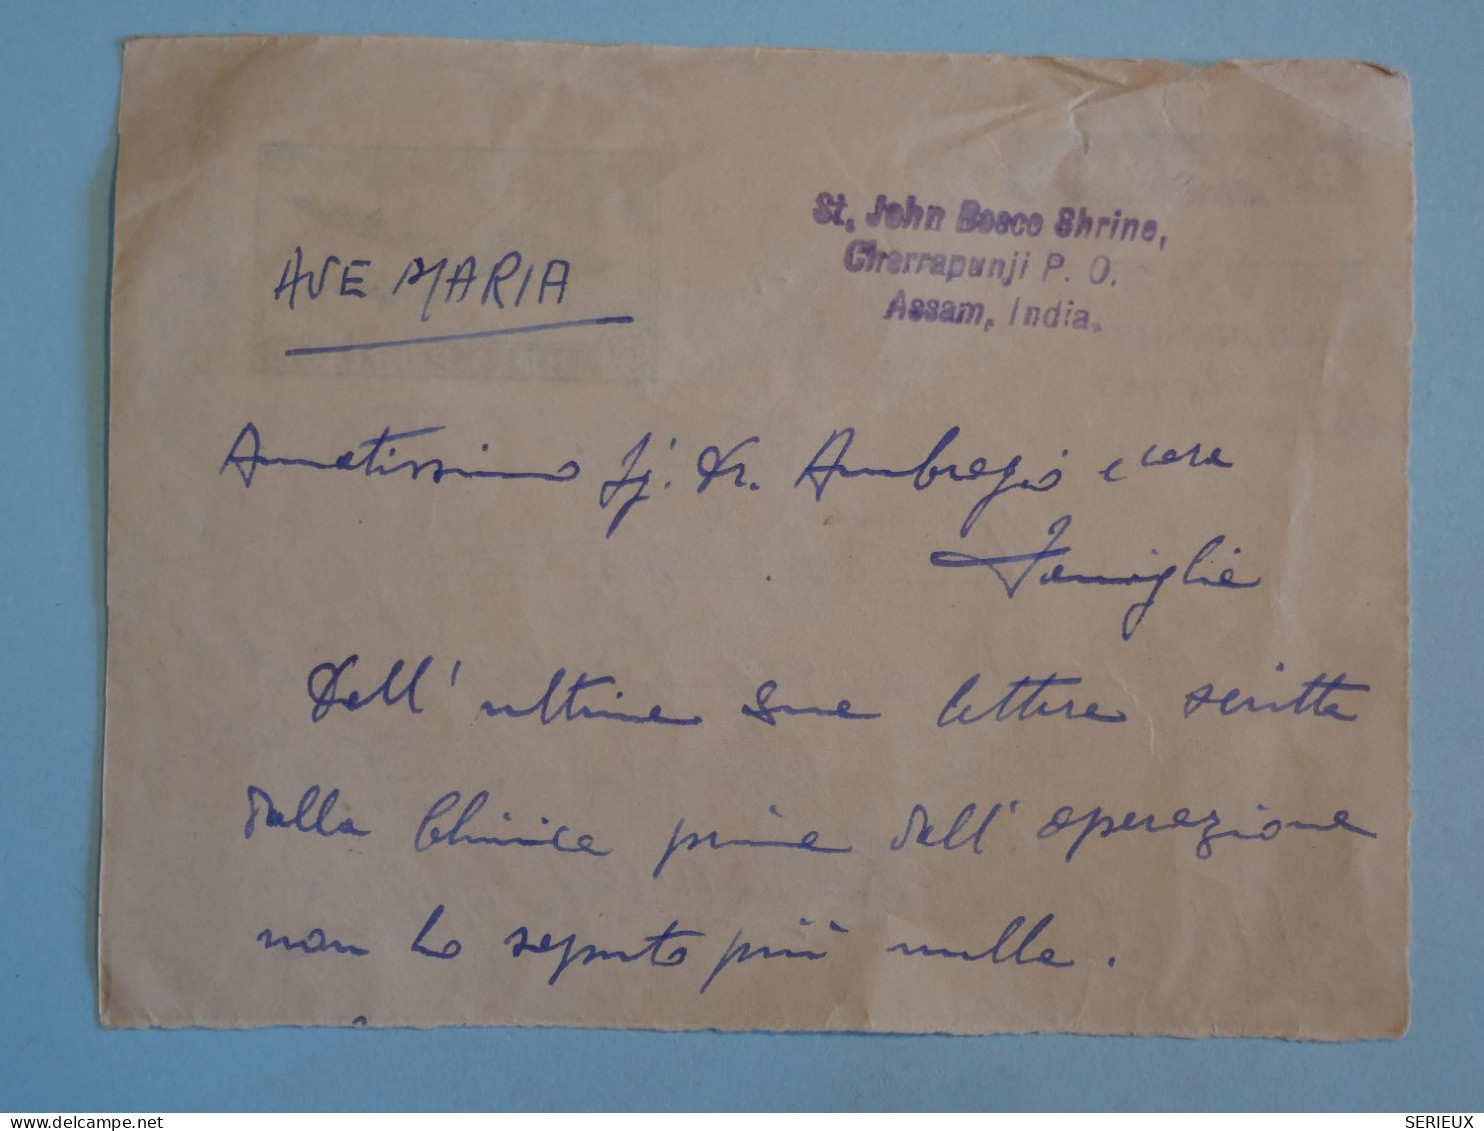 St. John Bosco Shrine,
Cherrapunji P. O.
Assam, India.
AVE MARIA
Amatissimo Sj. Dr. Ambrogio e cara
Famiglia
Dall'ultima sua lettera scritta
dalla Clinica prima dell'operazione
non ho saputo più nulla.
SERIEUX